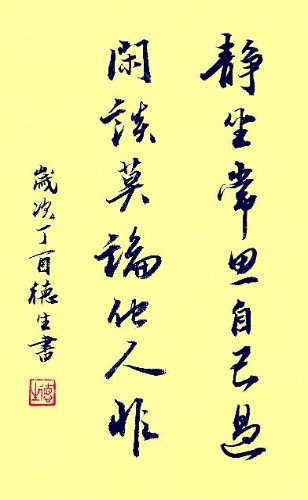 靜坐常思自己過
閑談莫論他人非
歲次丁酉德生書
德生